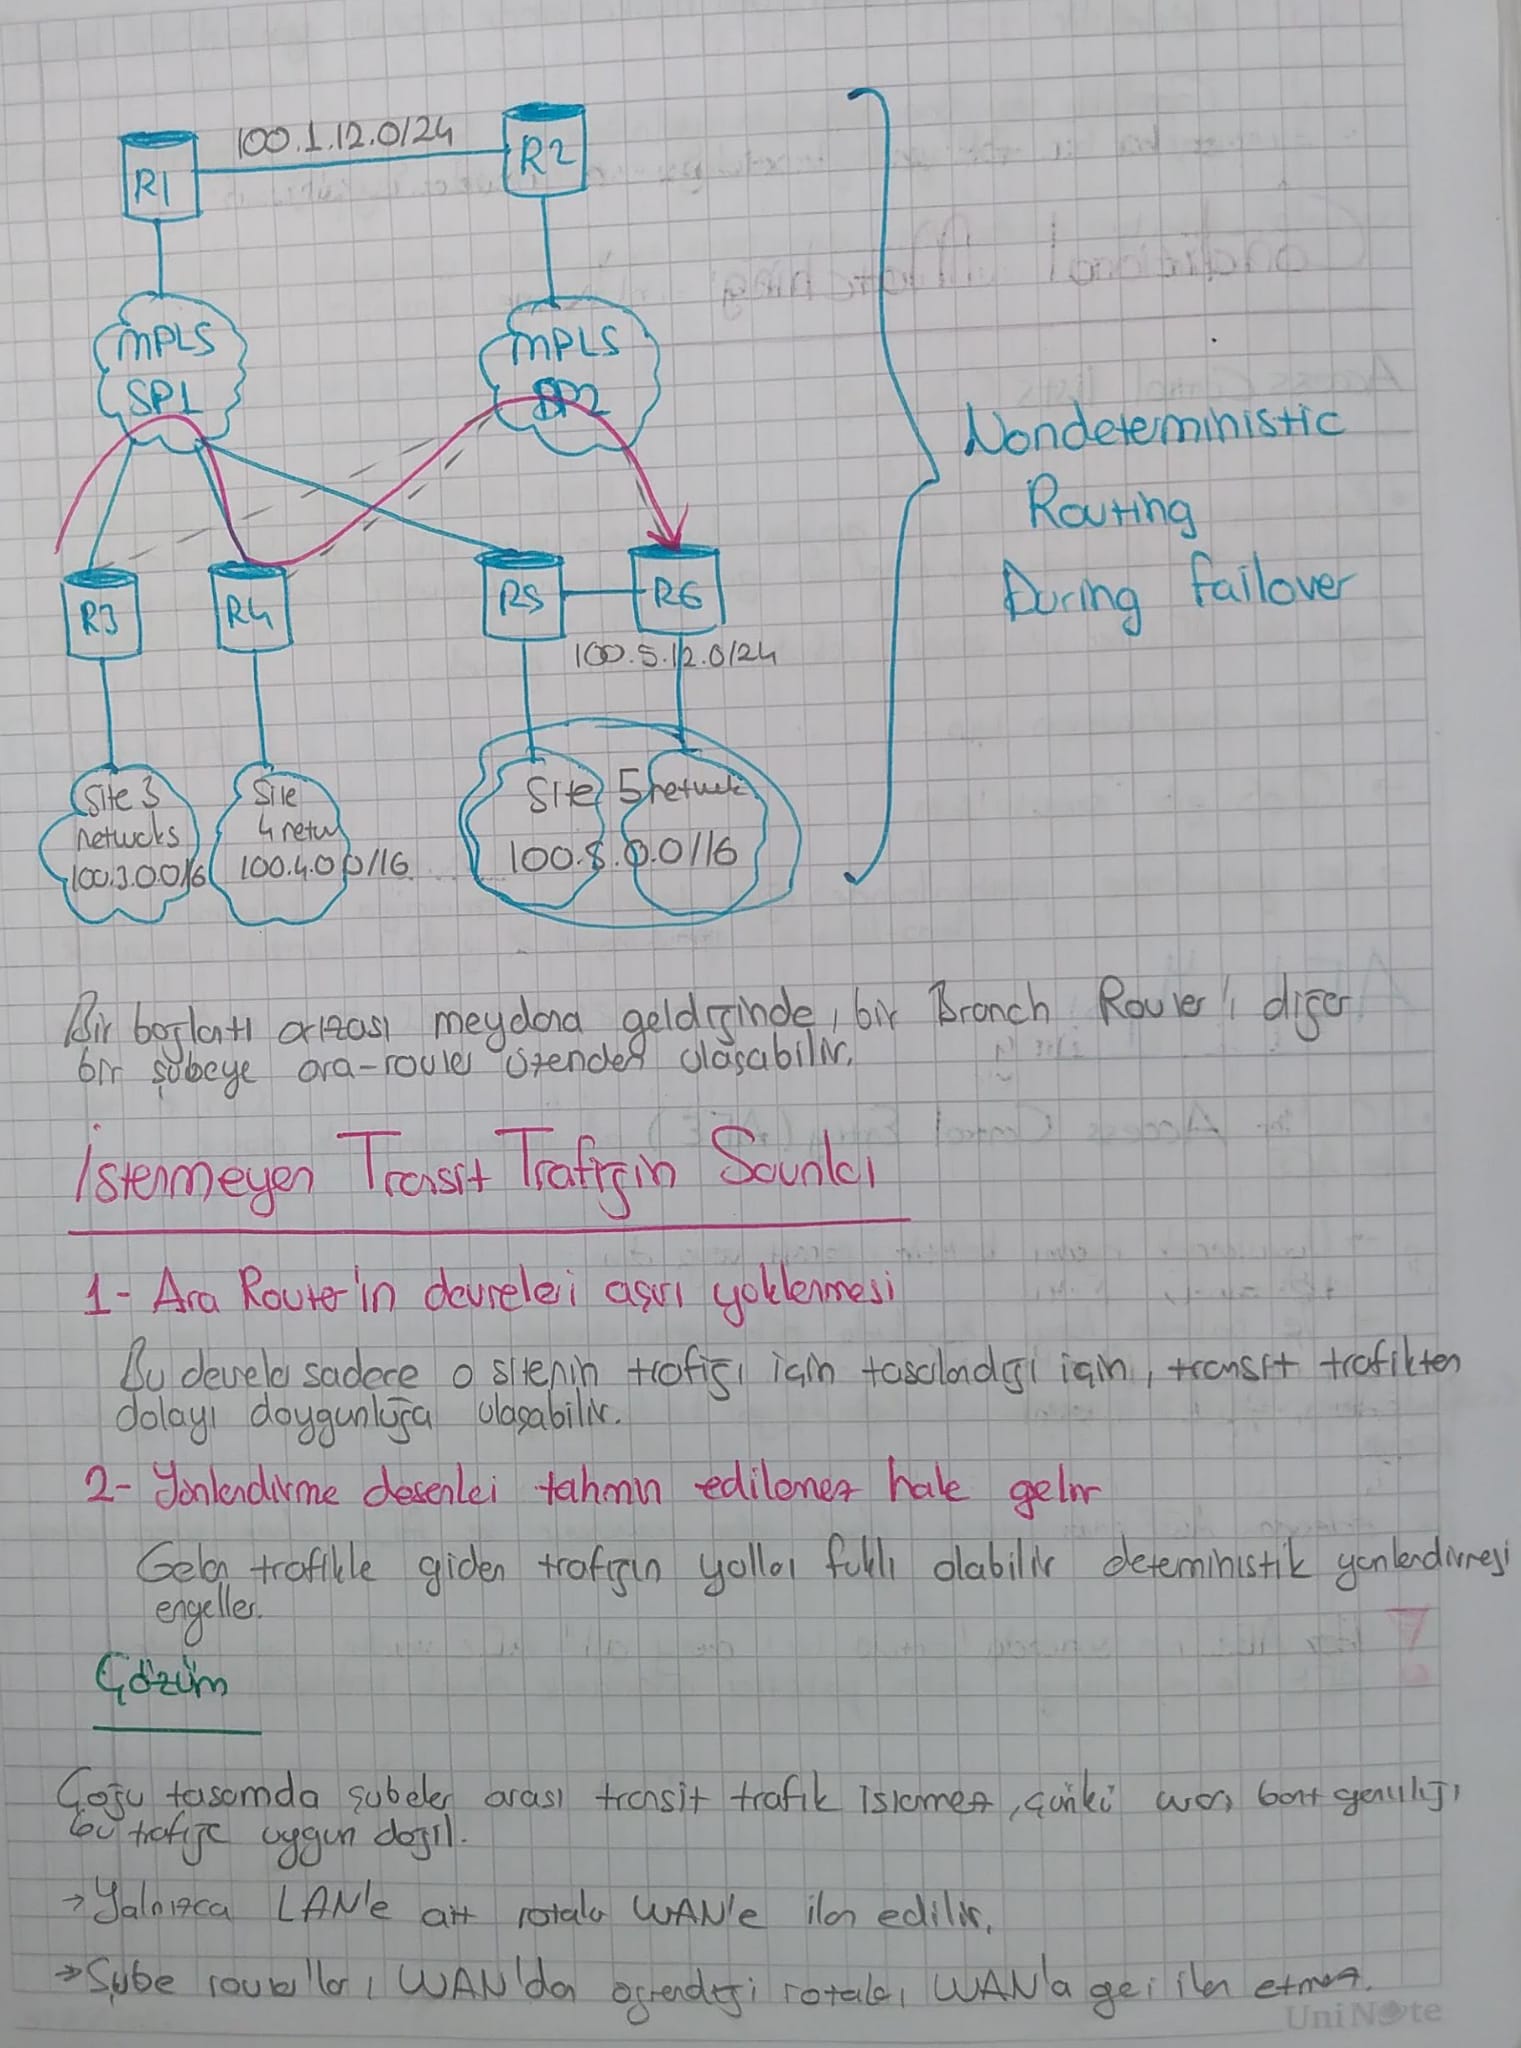 R1
100.1.12.0/24
R2
MPLS
SP1
MPLS
SP2
Nondeterministic
Routing
During failover
R3
R4
R5
R6
100.5.12.0/24
Site 3
networks
100.3.0.0/16
Site
4 netw
100.4.0.0/16
Site 5 network
100.5.0.0/16
Bir bağlantı arızası meydana geldiğinde, bir Branch Router'ı diğer
bir şubeye ara-router üzerinden ulaşabilir.
İstenmeyen Transit Trafiğin Sorunları
1- Ara Router'in devreleri aşırı yüklenmesi
Bu devreler sadece o sitenin trafiği için tasarlandığı için, transit trafikten
dolayı doygunluğa ulaşabilir.
2- Yönlendirme desenleri tahmin edilemez hale gelir
Gelen trafikle giden trafiğin yolları farklı olabilir deterministik yönlendirmeyi
engeller.
Çözüm
Çoğu tasarımda şubeler arası transit trafik istenmez, çünkü wan bant genişliği
bu trafiğe uygun değil.
→ Yalnızca LAN'e ait rotalar WAN'e ilan edilir.
→ Şube router'ları, WAN'dan öğrendiği rotaları WAN'a geri ilan etmez.
UniNote